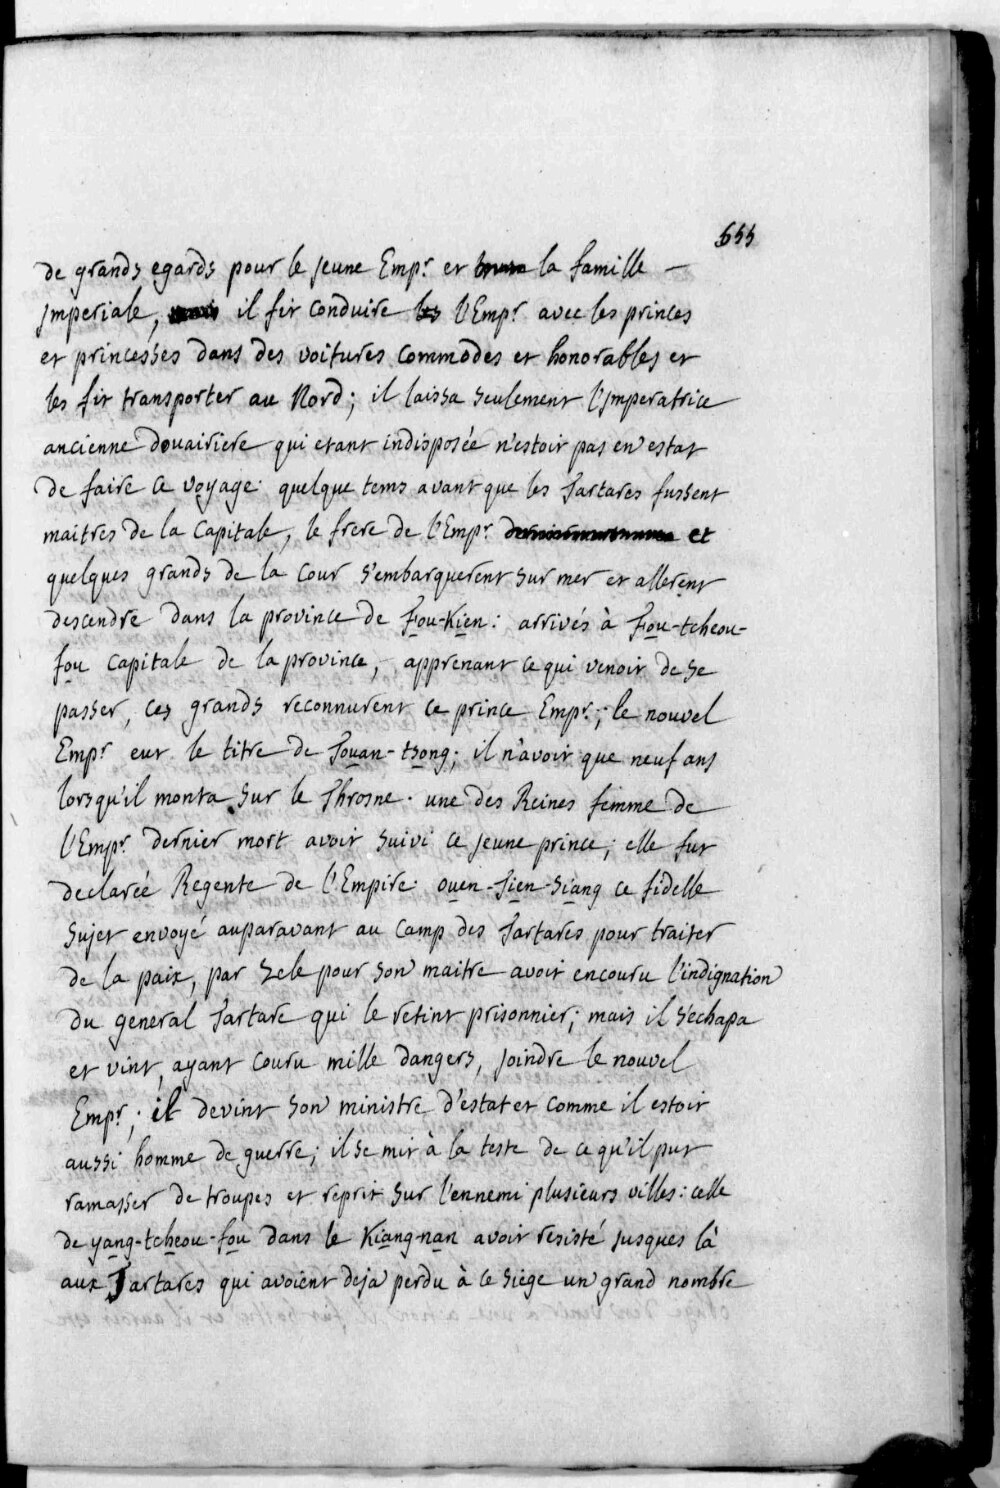 655
de grands egards pour le jeune Emp.r et la famille –
jmperiale, il fit conduire l'Emp.r avec les princes
et princesses dans des voitures commodes et honorables et
les fit transporter au Nord; il laissa seulement l'jmperatrice
ancienne douairiere qui etant indisposée n'estoit pas en estat
de faire ce voyage. quelque tems avant que les Tartares fussent
maitres de la capitale, le frere de l'Emp.r et
quelques grands de la cour s'embarquerent sur mer et allerent
descendre dans la province de Fou-Kien: arrivés à Fou-tcheou-
fou capitale de la province, apprenant ce qui venoit de se
passer, ces grands reconnurent ce prince Emp.r; le nouvel
Emp.r eut le titre de Touan-tsong; il n'avoit que neuf ans
lorsqu'il monta sur le Throsne. une des Reines femme de
l'Emp.r dernier mort avoit suivi ce jeune prince; elle fut
declareé Regente de l'Empire. ouen-tien-siang ce fidelle
sujet envoyé auparavant au camp des Tartares pour traiter
de la paix, par zele pour son maitre avoit encouru l'indignation
du general Tartare qui le retint prisonnier; mais il s'echapa
et vint, ayant couru mille dangers, joindre le nouvel
Emp.r; il devint son ministre d'estat et comme il estoit
aussi homme de guerre; il se mit à la teste de ce qu'il put
ramasser de troupes et reprit sur l'ennemi plusieurs villes: celle
de yang-tcheou-fou dans le Kiang-nan avoit resisté jusques là
aux Tartares qui avoient deja perdu à ce siege un grand nombre